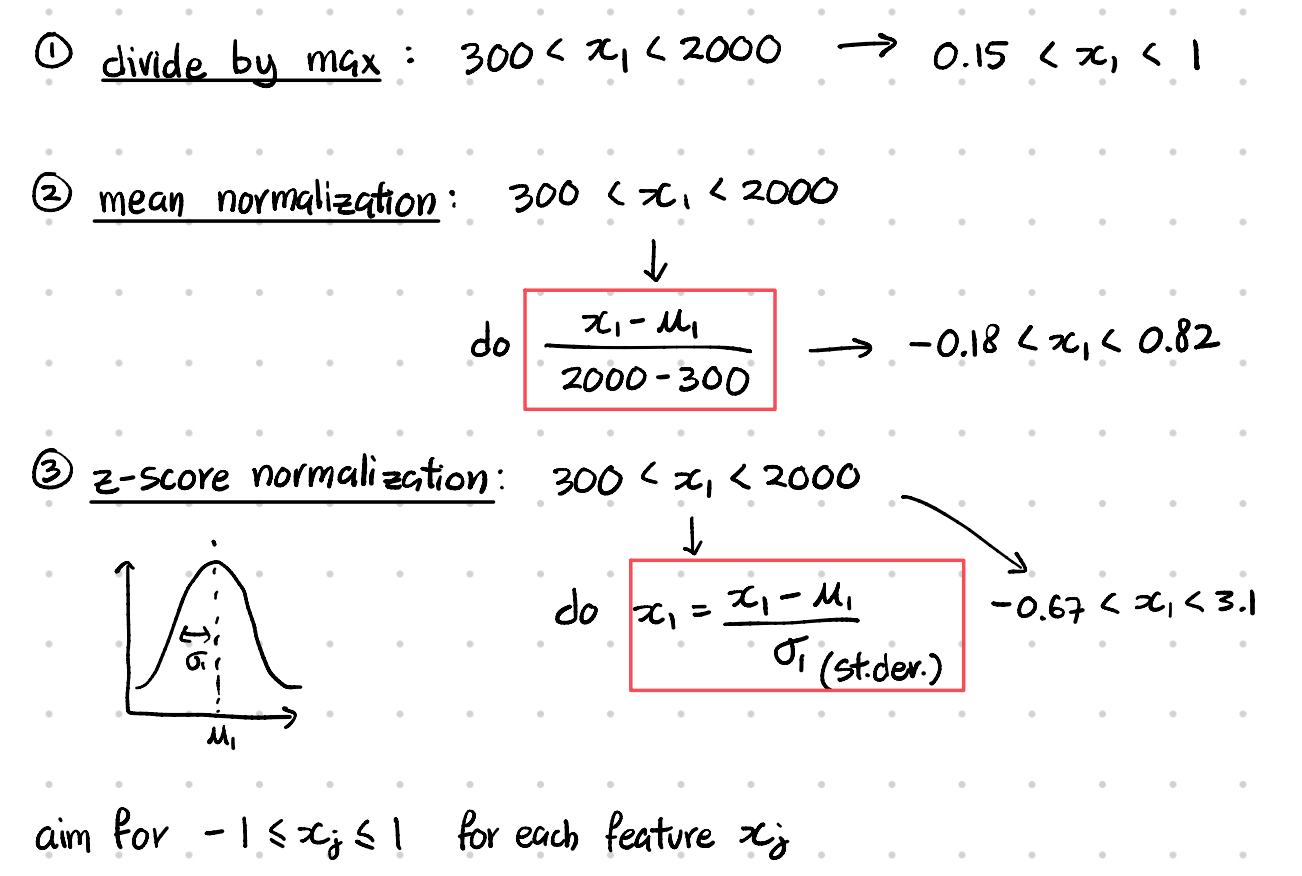 ① divide by max : 300 < x₁ < 2000 → 0.15 < x₁ < 1
② mean normalization : 300 < x₁ < 2000
↓
do (x₁ - μ₁) / (2000 - 300) → -0.18 < x₁ < 0.82
③ z-score normalization : 300 < x₁ < 2000
↓
do x₁ = (x₁ - μ₁) / σ₁ (st.dev.) -0.67 < x₁ < 3.1
σ₁
μ₁
aim for -1 ≤ xⱼ ≤ 1 for each feature xⱼ